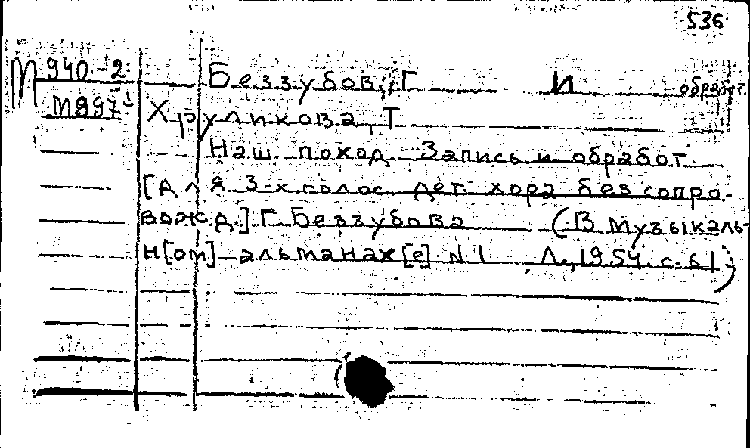 536
М 940-2 Беззубов, Г. И обработ.
М 897 Хруликова, Т
Наш поход. Запись и обработ.
[для 3-х голос. дет. хора без сопро-
вожд.] Г. Беззубова (В музыкаль-
н[ом] альманах[е] N 1 Л., 1954. с. 61)